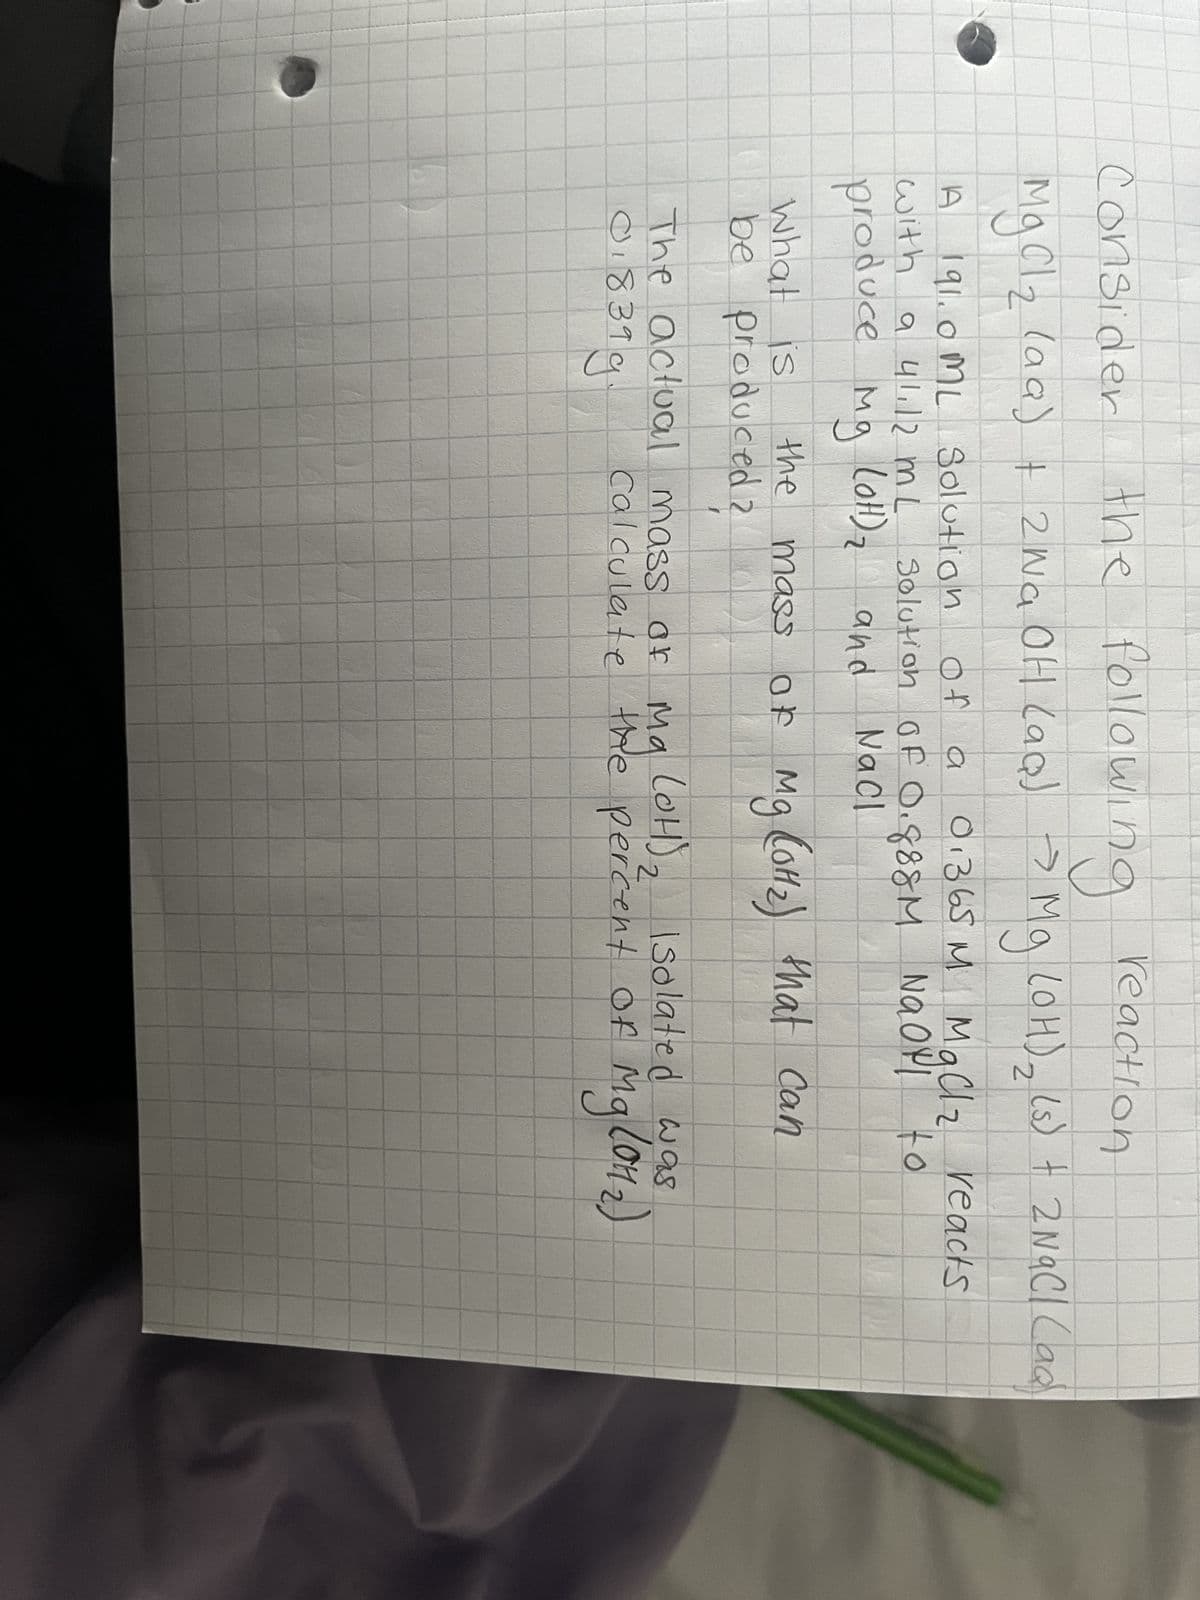 Consider the following reaction
MgCl2 (aq) + 2NaOH (aq) → Mg(OH)2 (s) + 2NaCl (aq)
A 191.0 mL Solution of a 0.365 M MgCl2 reacts
with a 41.12 mL Solution of 0.888M NaOH to
produce Mg(OH)2 and NaCl
What is the mass of Mg(OH2) that can
be produced?
The actual mass of Mg(OH)2 isolated was
0.839g. Calculate the percent of Mg(OH2)